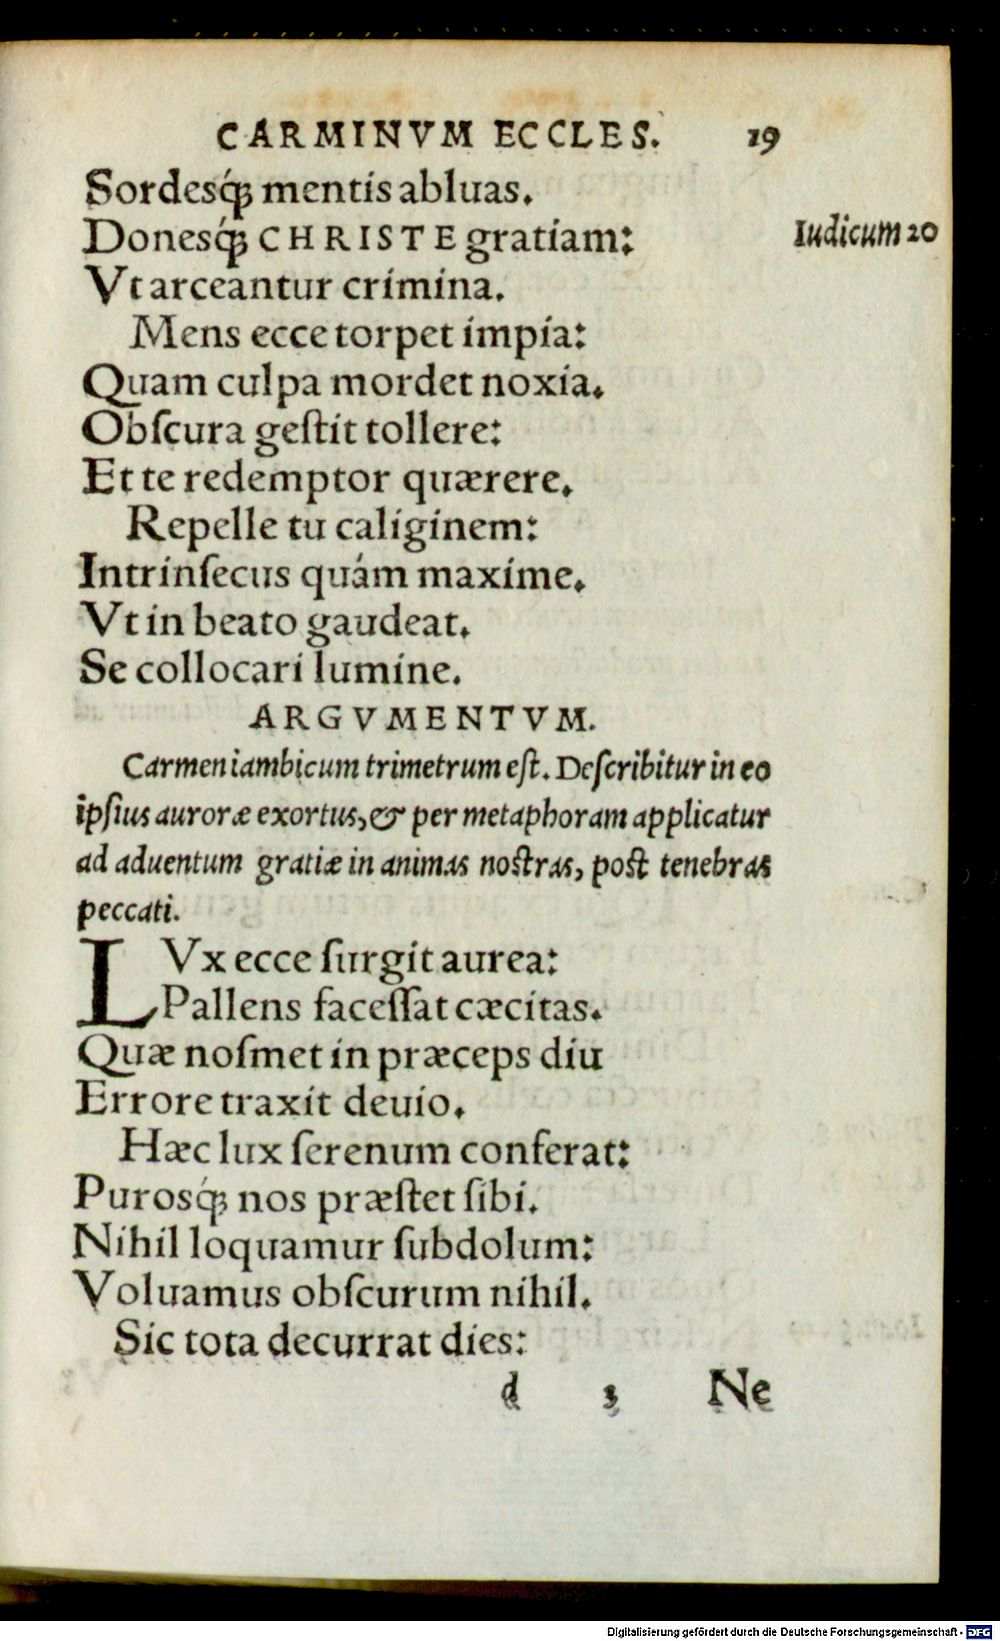 CARMINVM ECCLES. 19
Sordesq́; mentis abluas.
Donesq́; CHRISTE gratiam:
Iudicum 20
Vt arceantur crimina.
Mens ecce torpet impia:
Quam culpa mordet noxia.
Obſcura geſtit tollere:
Et te redemptor quærere.
Repelle tu caliginem:
Intrinſecus quám maxime.
Vt in beato gaudeat.
Se collocari lumine.
ARGVMENTVM.
Carmen iambicum trimetrum eſt. Deſcribitur in eo
ipſius auroræ exortus, & per metaphoram applicatur
ad aduentum gratiæ in animas noſtras, poſt tenebras
peccati.
LVx ecce ſurgit aurea:
Pallens faceſſat cæcitas.
Quæ noſmet in præceps diu
Errore traxit deuio.
Hæc lux ſerenum conferat:
Purosq́; nos præſtet ſibi.
Nihil loquamur ſubdolum:
Voluamus obſcurum nihil.
Sic tota decurrat dies:
d 3 Ne
Digitalisierung gefördert durch die Deutsche Forschungsgemeinschaft - DFG